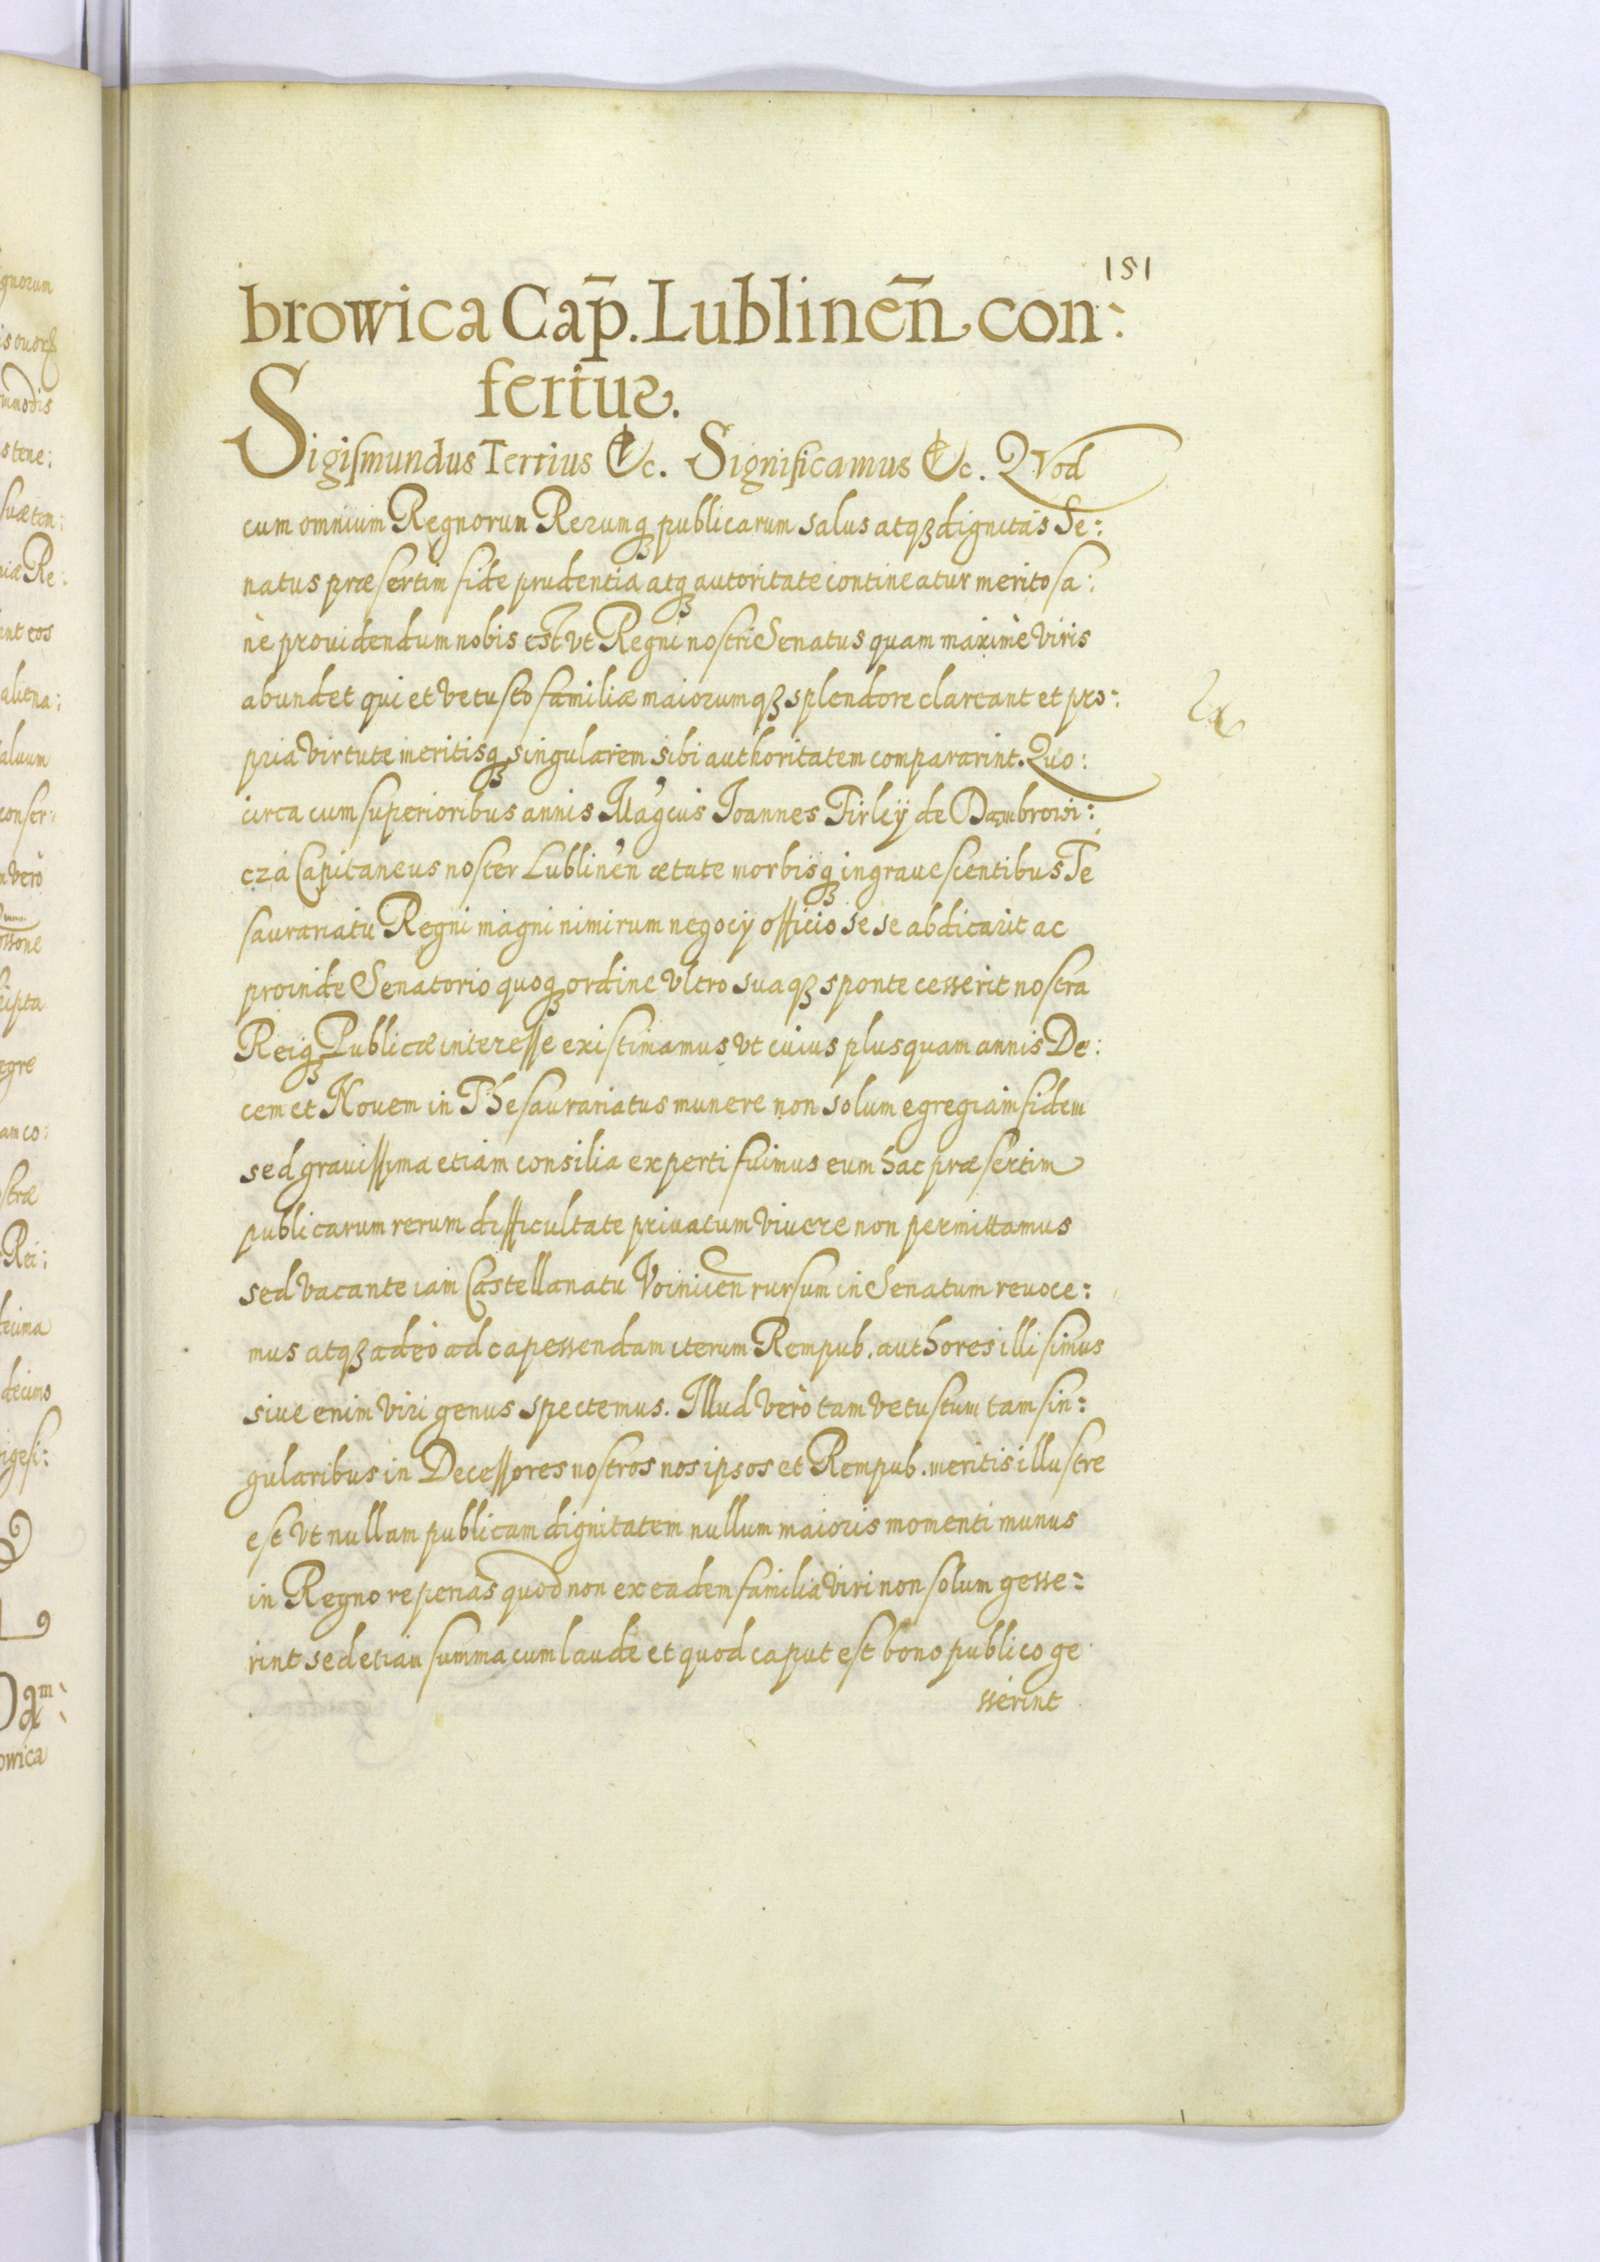 151
browica Cap̄. Lublineñ con:
fertur.
Sigismundus Tertius &c. Significamus &c. QVod
cum omnium Regnorum Rerumqꝫ publicarum salus atqꝫ dignitas Se:
natus præsertim fide prudentia atqꝫ autoritate contineatur merito sa:
nè prouidendum nobis est vt Regni nostri Senatus quam maximè viris
abundet qui et vetusto familiæ maiorumqꝫ splendore clareant et pro:
pria virtute meritisqꝫ singularem sibi authoritatem compararint. Quo:
circa cum superioribus annis Mag̃cus Ioannes Firleÿ de Dambrowi:
cza Capitaneus noster Lubliñen ætate morbisqꝫ ingrauescentibus Te
saurariatu Regni magni nimirum negocÿ officio sese abdicarit ac
proinde Senatorio quoqꝫ ordine vltro suaqꝫ sponte cesserit nostra
Reiqꝫ Publicæ interesse existimamus vt cuius plusquam annis De:
cem et Nouem in Thesaurariatus munere non solum egregiam fidem
sed grauissima etiam consilia experti fuimus eum hac præsertim
publicarum rerum difficultate priuatum viuere non permittamus
sed vacante iam Castellanatu Voinicen̄ rursum in Senatum reuoce:
mus atqꝫ adeò ad capessendam iterum Rempub. authores illi simus
siue enim viri genus spectemus. Illud verò tam vetustum tam sin:
gularibus in Decessores nostros nos ipsos et Rempub. meritis illustre
est vt nullam publicam dignitatem nullum maioris momenti munus
in Regno reperias quod non ex eadem familia viri non solum gesse:
rint sed etiam summa cum laude et quod caput est bono publico ge
sserint